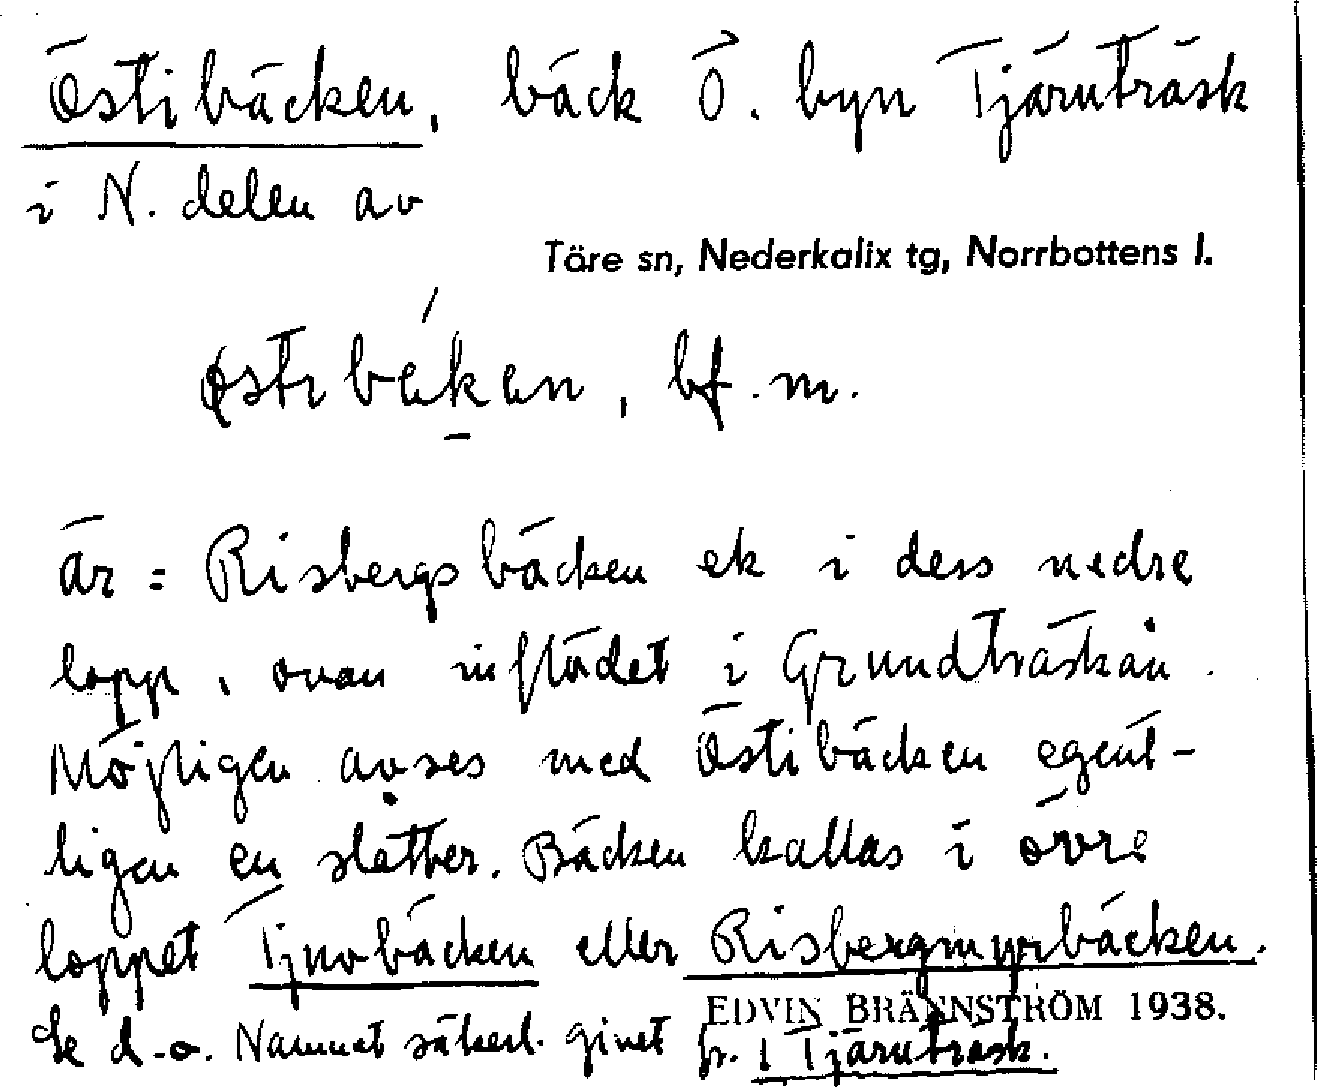 Östibäcken, bäck Ö. byn Tjärnträsk
i N. delen av
Täre sn, Nederkalix tg, Norrbottens l.
bf. m.
är = Risbergsbäcken ek i dess nedre
lopp, ovan inflödet i Grundträskån.
Möjligen avses med Östibäcken egent-
ligen en slåtter. Bäcken kallas i övre
loppet Tjnobäcken eller Risbergmyrbäcken.
EDVIN BRÄNNSTRÖM 1938.
Se d.o. Namnet säkerl. givet fr. Tjärnträsk.